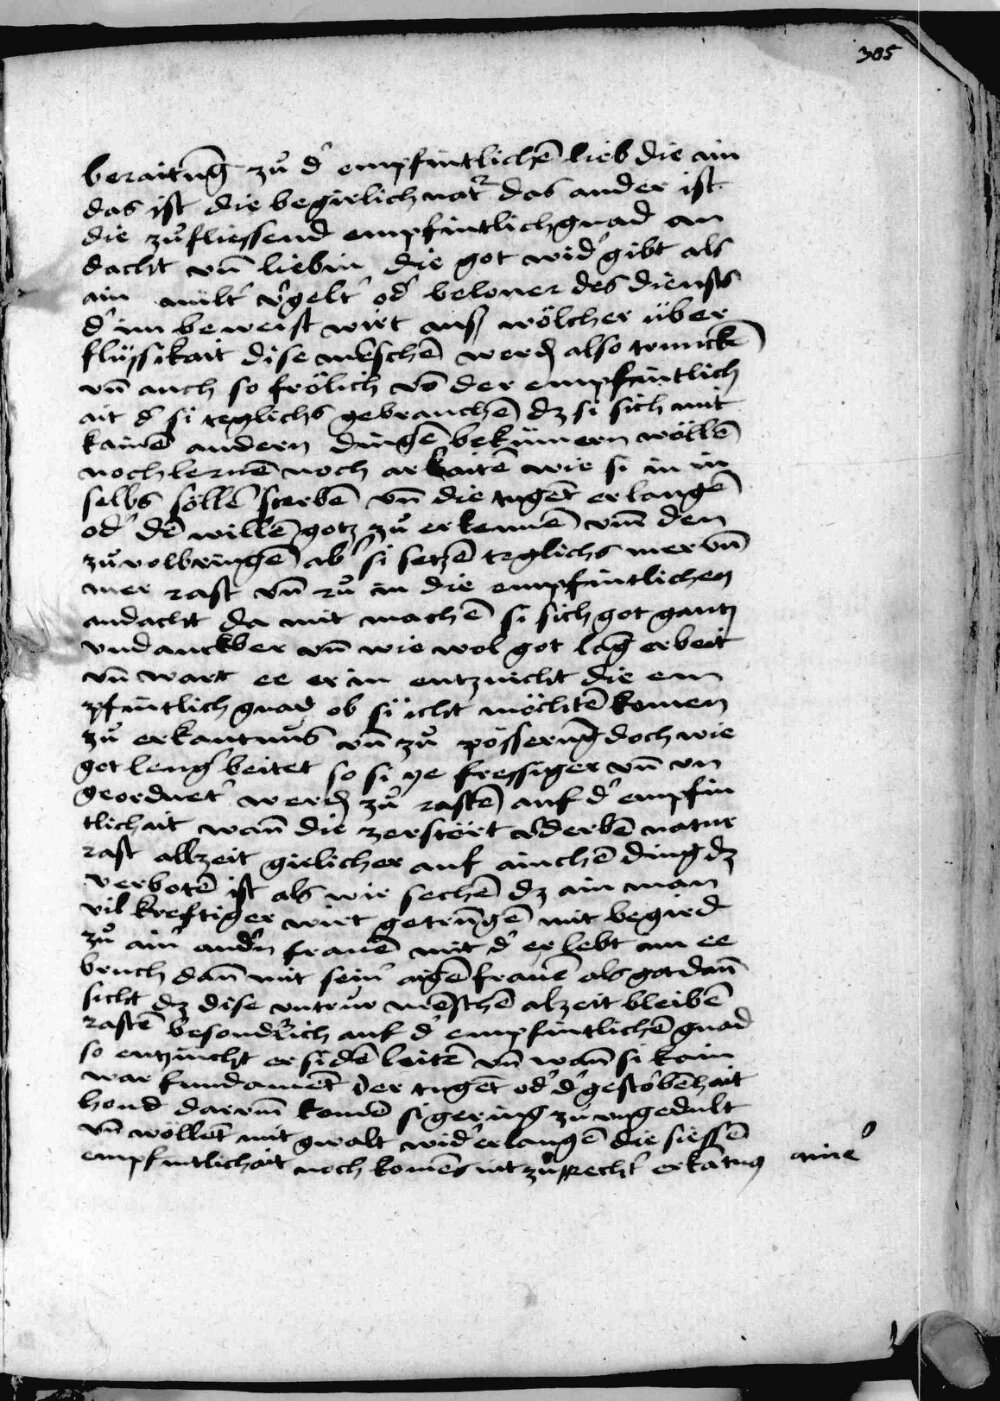 385
beraitūg zů d' empfintlichē lieb die ain
das ist die begirlich natr das ander ist
die zůfliessend empfintlich gnad an
dacht vn̄ liebin die got wid' gibt als
ain milt' v'gelt' od' beloner des diensts
d' im beweist wirt auß wölcher über
flüssikait dise mēschē werdē also trunckē
vn̄ auch so frölich vō der empfintlich
ait d' si teglichs gebrauchē dz si sich mit
kainē andern dingē bekümern wöllē
noch lernē noch arbaitē wie si in in
selbs söllē sterbē vn̄ die tugēt erlangē
od' dē willē gotz zů erkennē vnd den
zů volbringē ab' si setzē teglichs mer vn̄
mer rast vn̄ rů in die empfintlichen
andacht da mit machē si sich got gantz
vndanckber vn̄ wie wol got lāg erbeit
vn̄ wart ee er in entznicht die em
pfintlich gnad ob si icht möchtē komen
zů erkantnus vn̄ zů pösserūg doch wie
got leng beitet so si ye fressiger vn̄ vn
geordnet' werdē zů rastē auf d' empfin
tlichait wan̄ die zerstört v'derbē natur
rast allzeit girlicher auf ainchē ding dz
verbotē ist als wir sechē dz ain man
vil kreftiger wirt getrūgē mit begird
zů ain' and'n frauē mit d' er lebt im ee
bruch dan̄ mit sein' aigē frauē als got dan̄
sicht dz dise vntrüw mēschē alzeit bleibē
rastē besond'lich auf d' empfintlichē gnad
so entzücht er si dē leitē vn̄ wan̄ si kain
war fundamēt der tugēt od' d' gestorbēhait
hond darum̄ komē si gering zů vngedult
vn̄ wöllēt mit gwalt wid' erlangē die siessē
empfintlichait noch komēs nit zů recht' erkātnus aine'